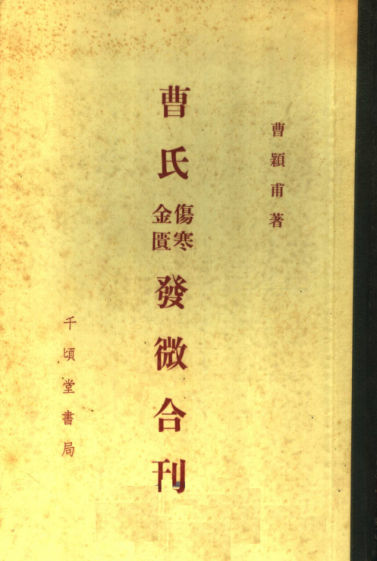 曹穎甫著
曹氏傷寒金匱發微合刊
千頃堂書局